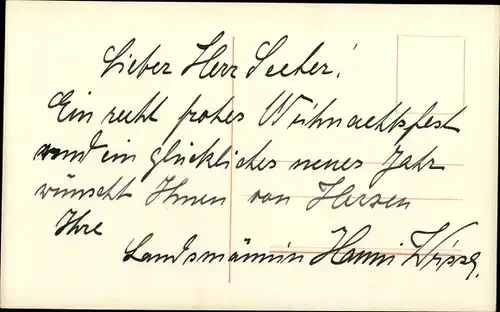 Lieber Herr Seeher!
Ein recht frohes Weihnachtsfest
und ein glückliches neues Jahr
wünscht Ihnen von Herzen
Ihre
Landsmännin Hanni